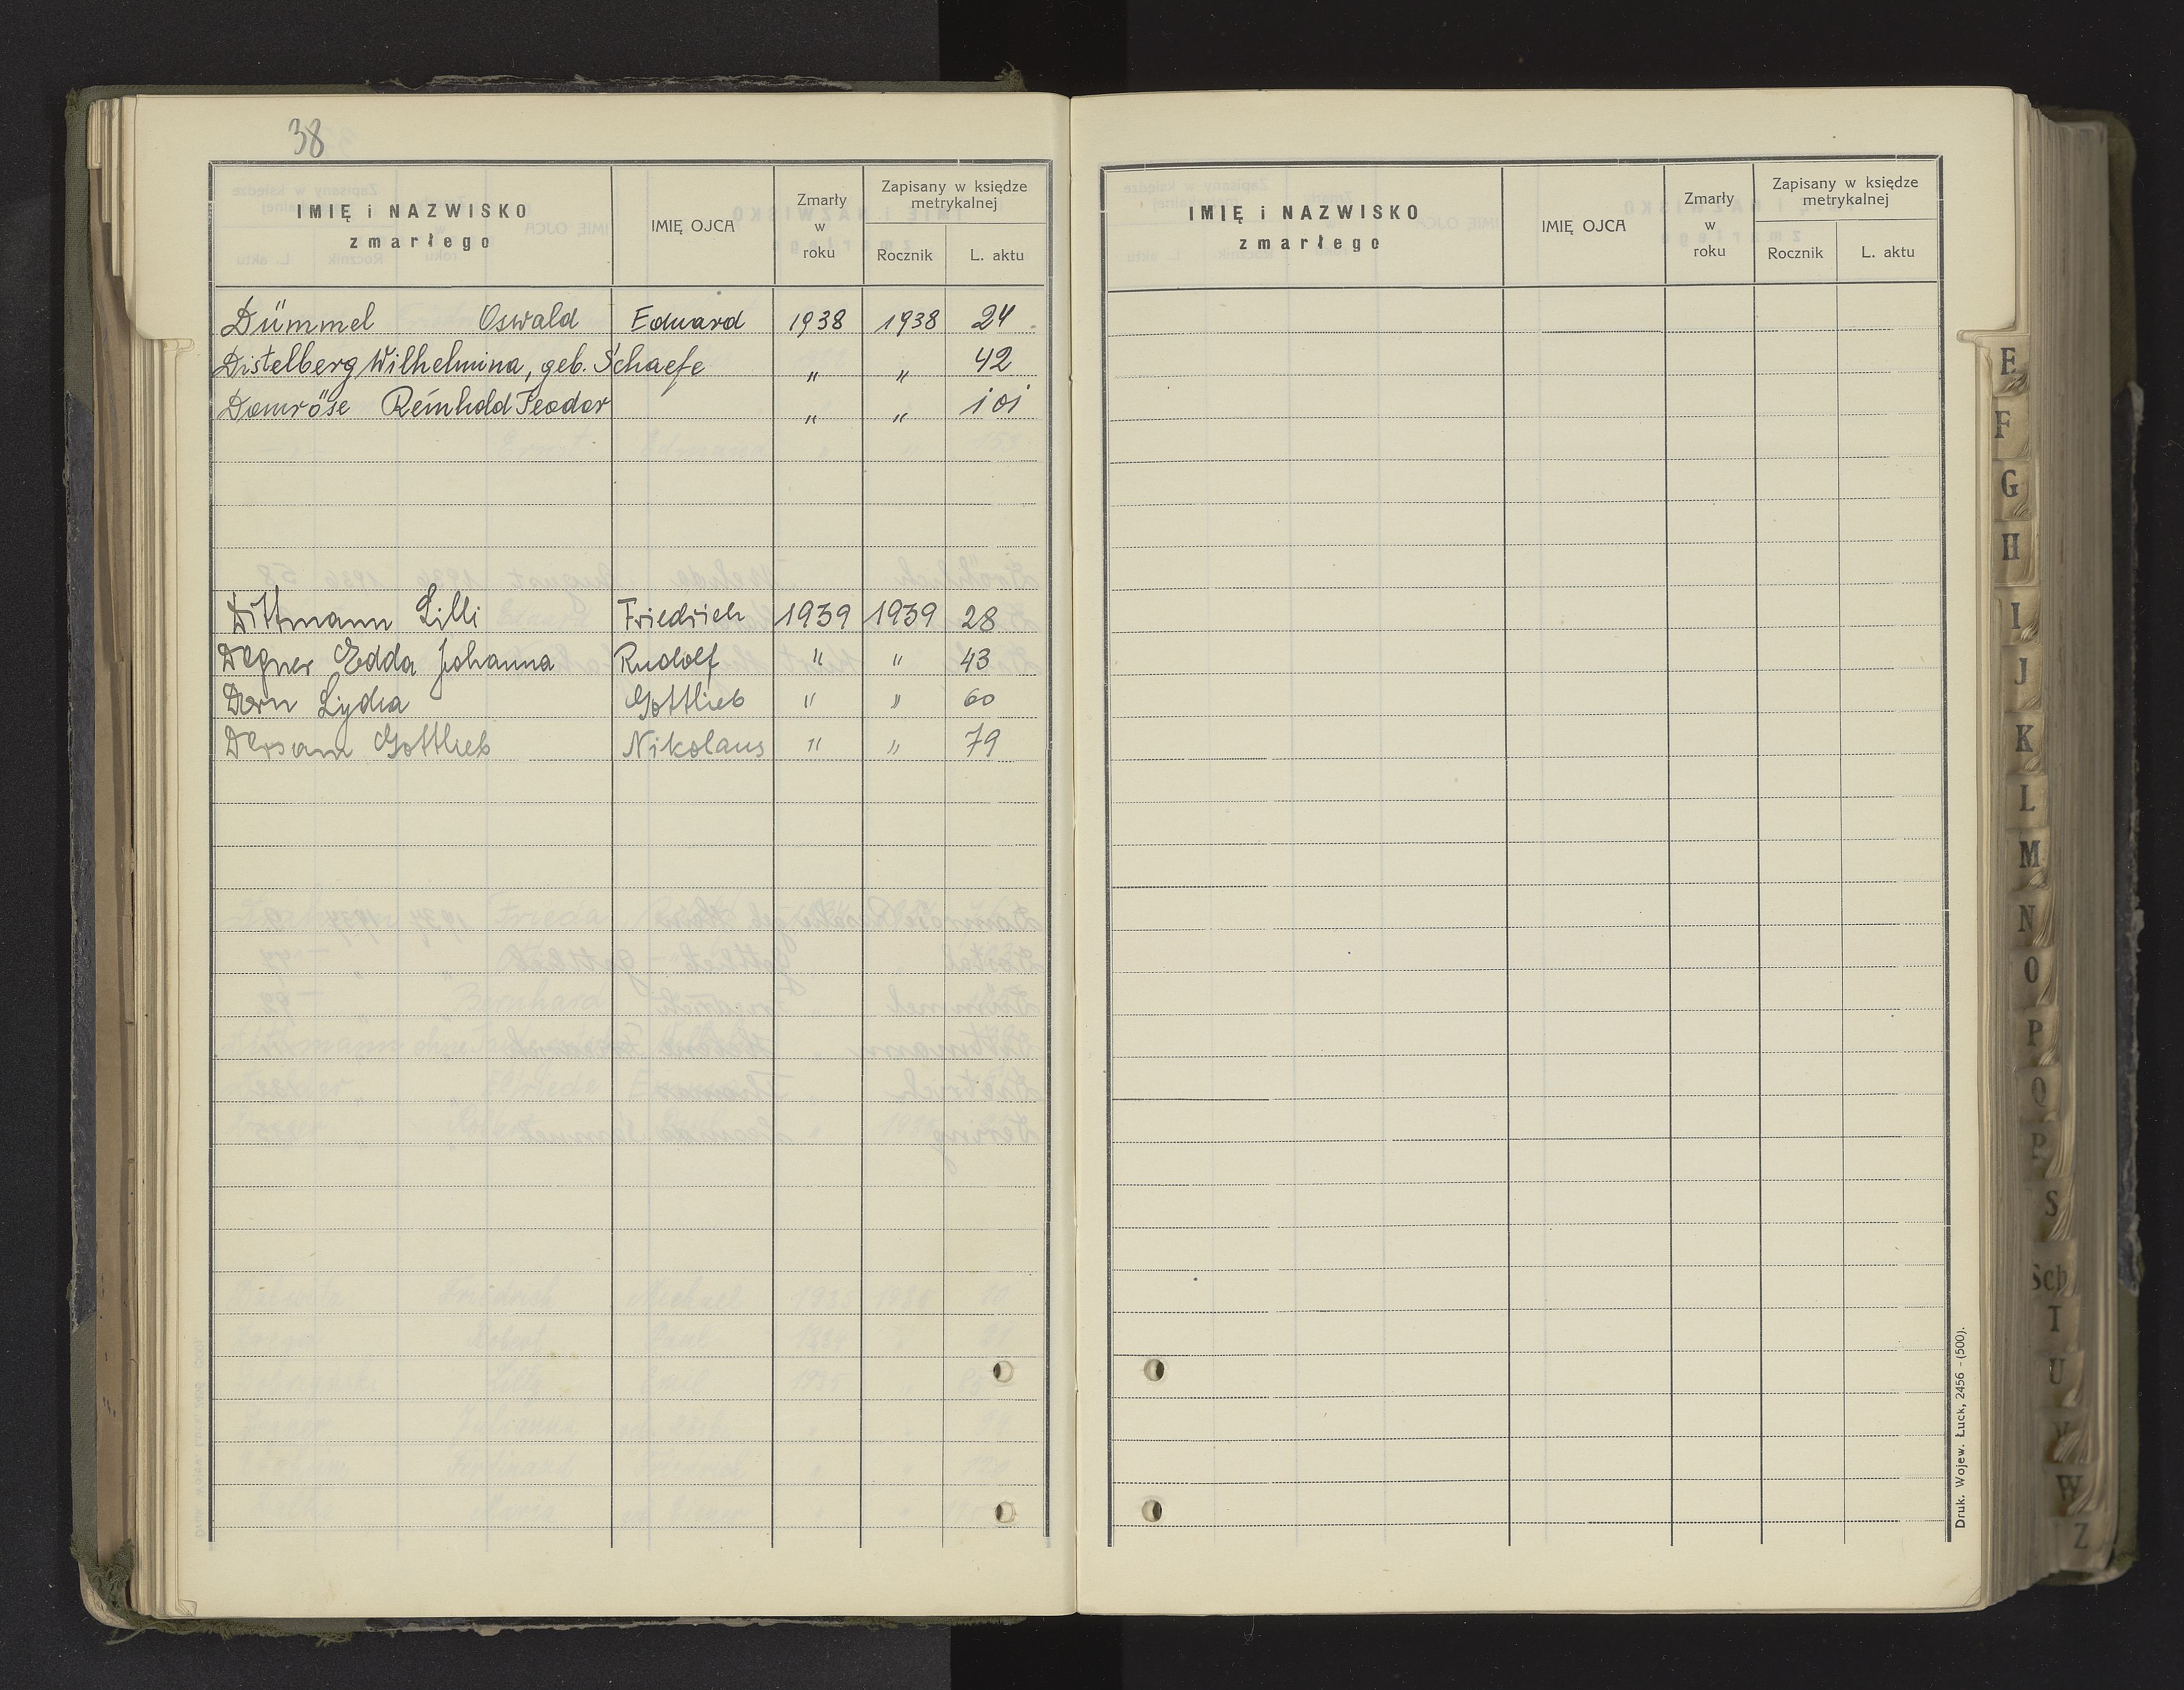 38
IMIĘ i NAZWISKO zmarłego | IMIĘ OJCA | Zmarły w roku | Zapisany w księdze metrykalnej | Rocznik | L. aktu
Dümmel Oswald | Eduard | 1938 | 1938 | 24
Distelberg Wilhelmina, geb. Schaefe | " | " | 42
Domröse Reinhold Teodor | " | " | 101
Dittmann Lilli | Friedrich | 1939 | 1939 | 28
Degner Edda Johanna | Rudolf | " | " | 43
Dorn Lydia | Gottlieb | " | " | 60
Dersam Gottlieb | Nikolaus | " | " | 79
IMIĘ i NAZWISKO zmarłego | IMIĘ OJCA | Zmarły w roku | Zapisany w księdze metrykalnej | Rocznik | L. aktu
Druk. Wojew. Łuck, 2456 - (500).
E
F
G
H
I
J
K
L
M
N
O
P
Q
R
S
Sch
T
U
V
W
Z